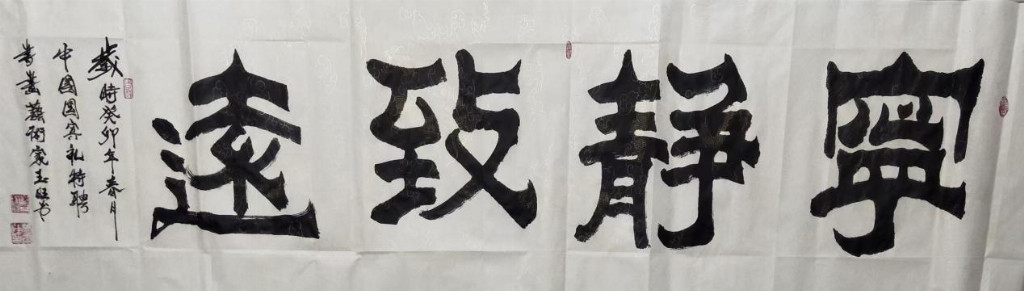 寧靜致遠
歲時癸卯年春月
中國國賓礼特聘
書畫藝術家